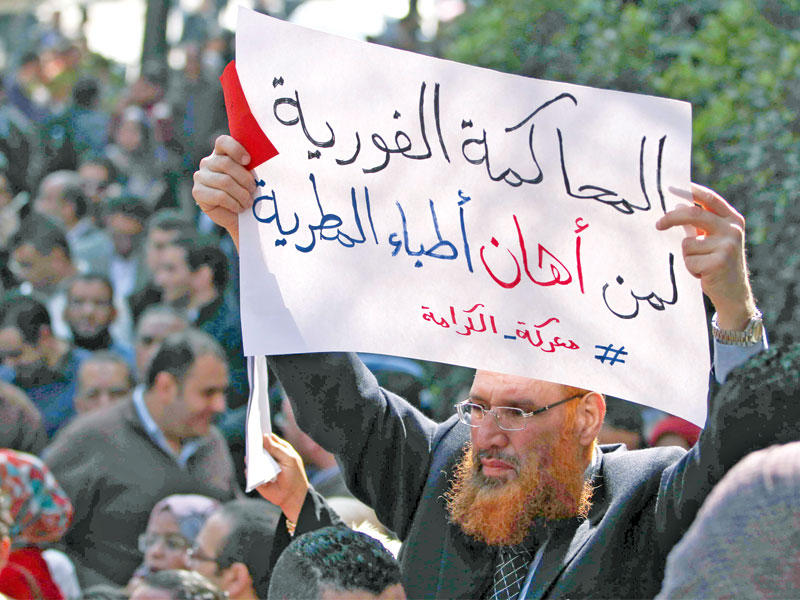 المحاكمة الفورية
لمن أهان أطباء المطرية
#معركة_الكرامة